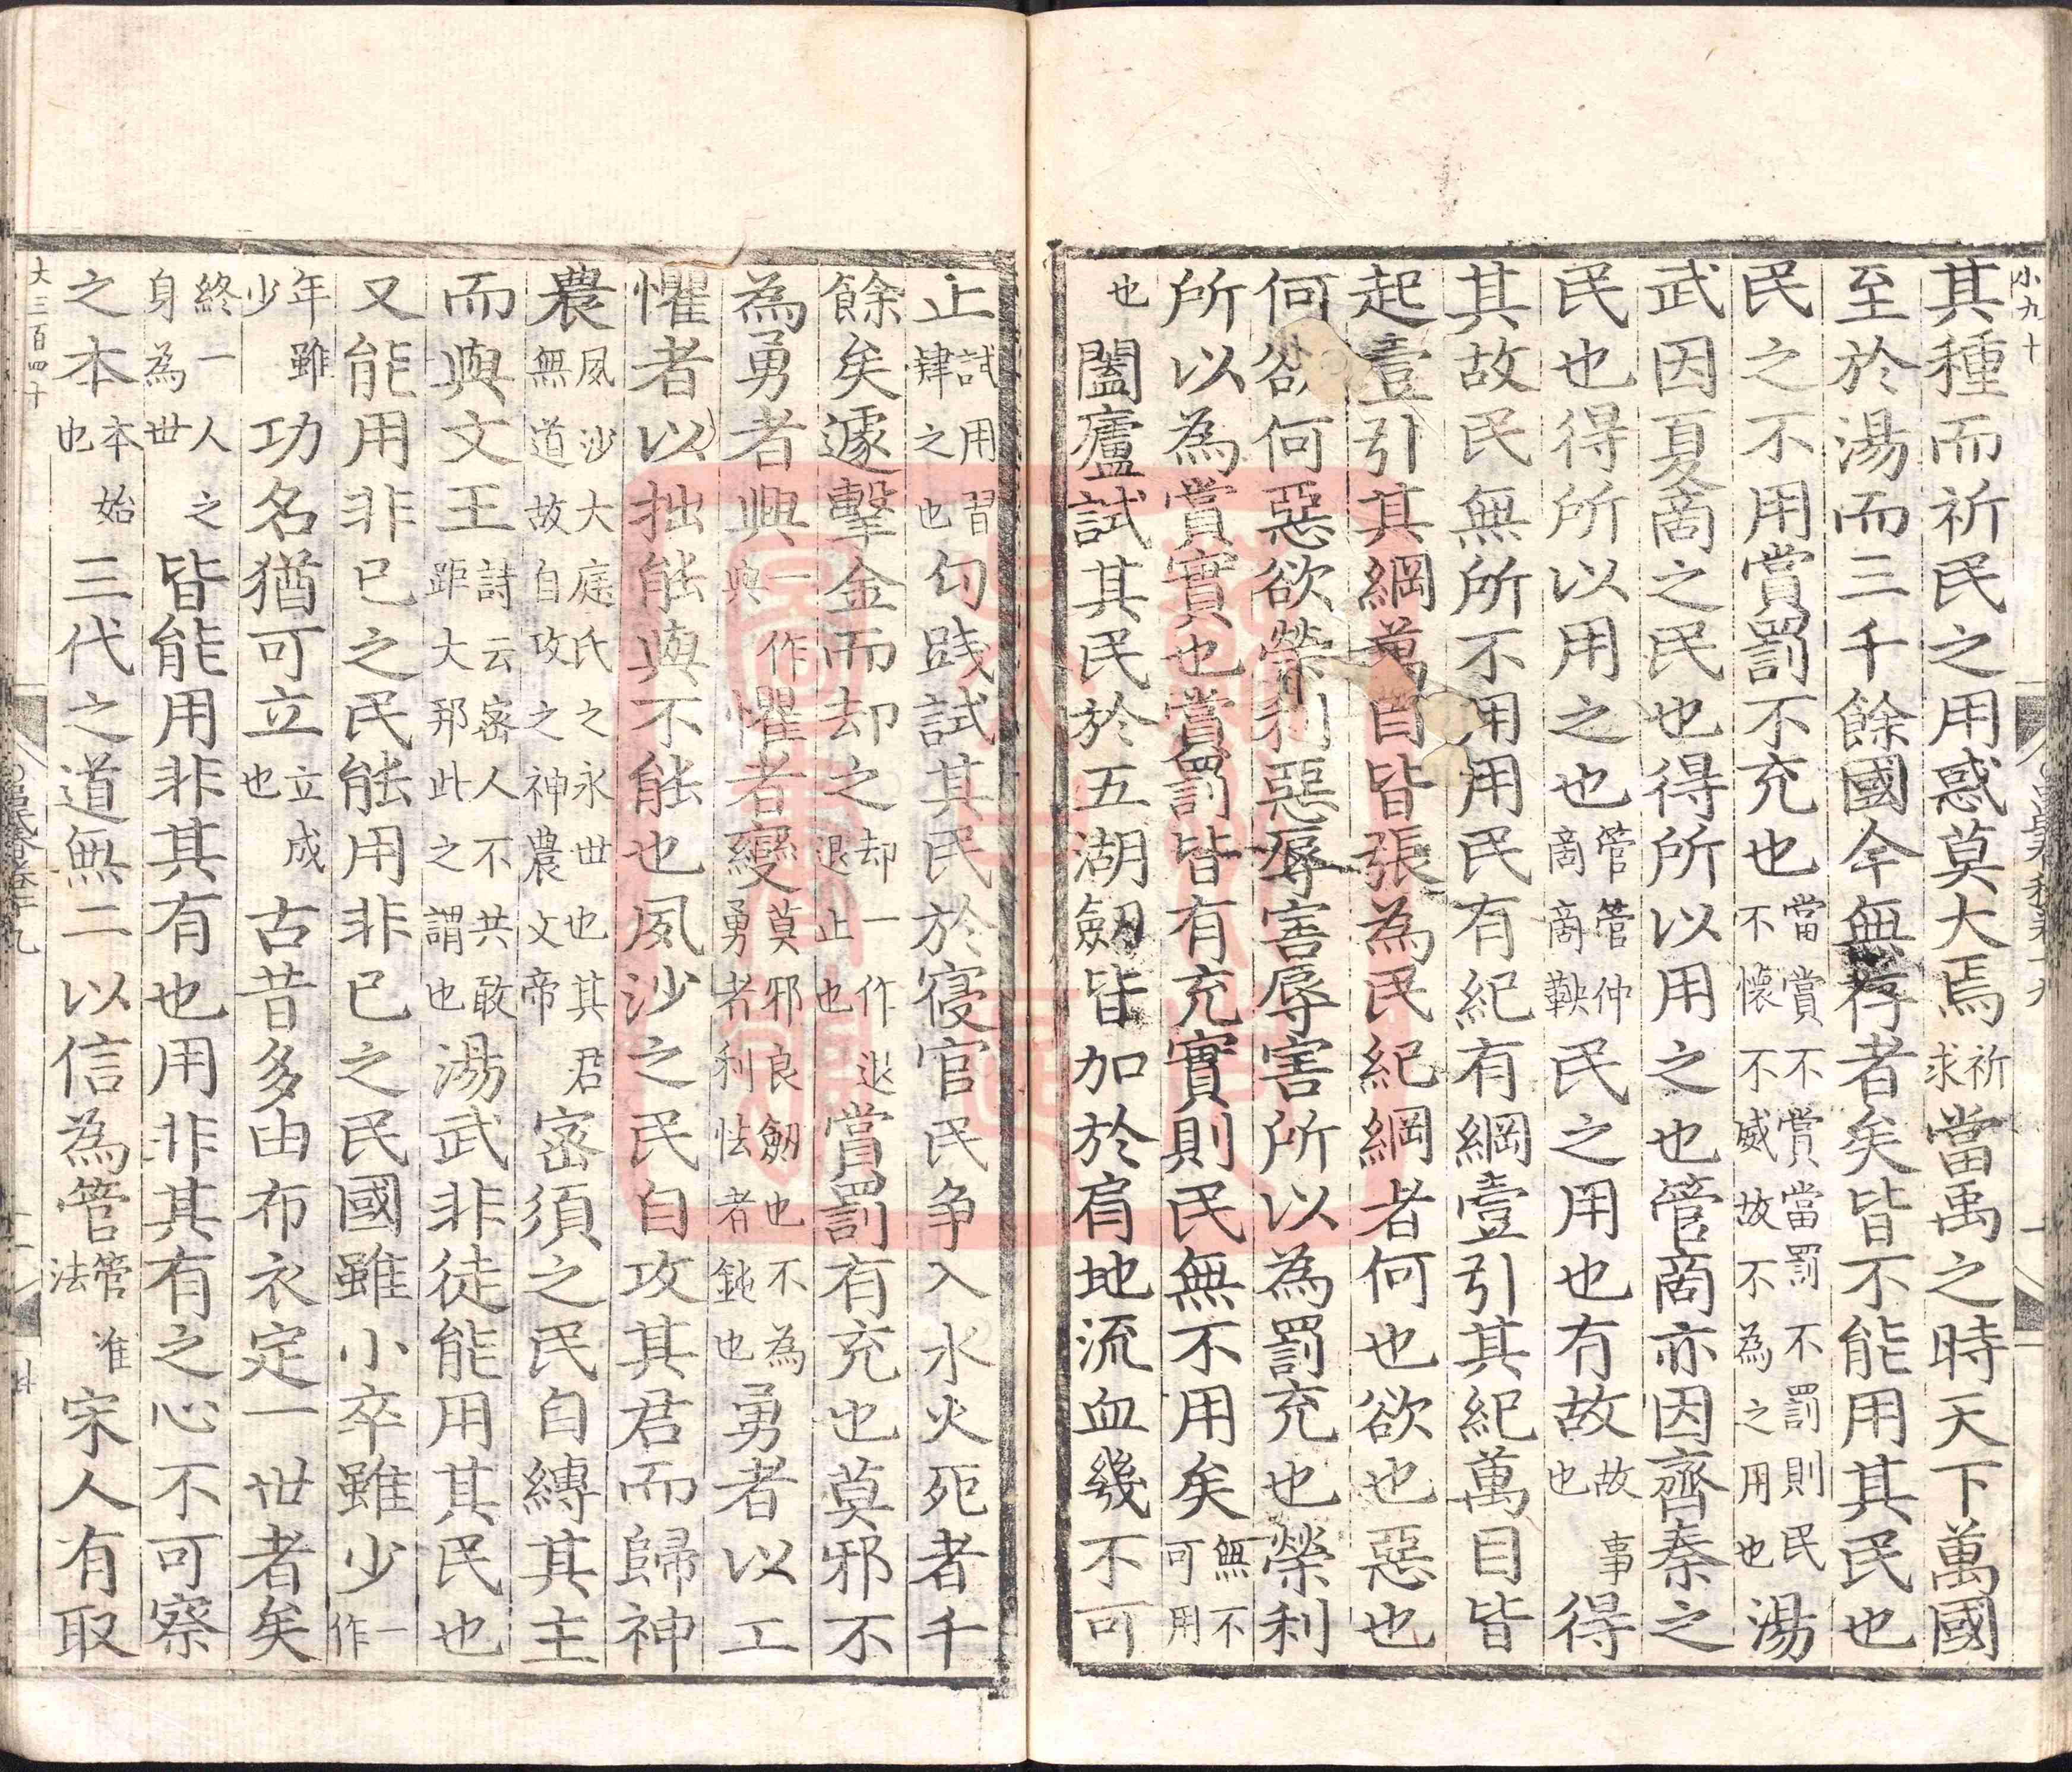 小九十
其種而祈民之用惑莫大焉祈求當禹之時天下萬國
至於湯而三千餘國今無存者矣皆不能用其民也
民之不用賞罰不充也當賞不賞當罰不罰則民不懷不威故不為之用也湯
武因夏商之民也得所以用之也管商亦因齊秦之
民也得所以用之也管管仲商商鞅民之用也有故故事也得
其故民無所不用用民有紀有綱壹引其紀萬目皆
起壹引其綱萬目皆張為民紀綱者何也欲也惡也
何欲何惡欲榮利惡辱害辱害所以為罰充也榮利
所以為賞實也賞罰皆有充實則民無不用矣無不可用
也闔廬試其民於五湖劒皆加於肩地流血幾不可
止試用習肆之也句踐試其民於寑宮民争入水火死者千
餘矣遽擊金而却之却一作退退止也賞罰有充也莫邪不
為勇者興一作興懼者變莫邪良劒也不為勇者利怯者鈍也勇者以工
懼者以拙能與不能也夙沙之民自攻其君而歸神
農夙沙大庭氏之永世也其君無道故自攻之神農文帝密須之民自縛其主
而與文王詩云密人不共敢距大邦此之謂也湯武非徒能用其民也
又能用非已之民能用非已之民國雖小卒雖少一作
年雖少功名猶可立立成也古昔多由布衣定一世者矣
終一人之身為世皆能用非其有也用非其有之心不可察
之本本始也三代之道無二以信為管管准法宋人有取
大三百四十